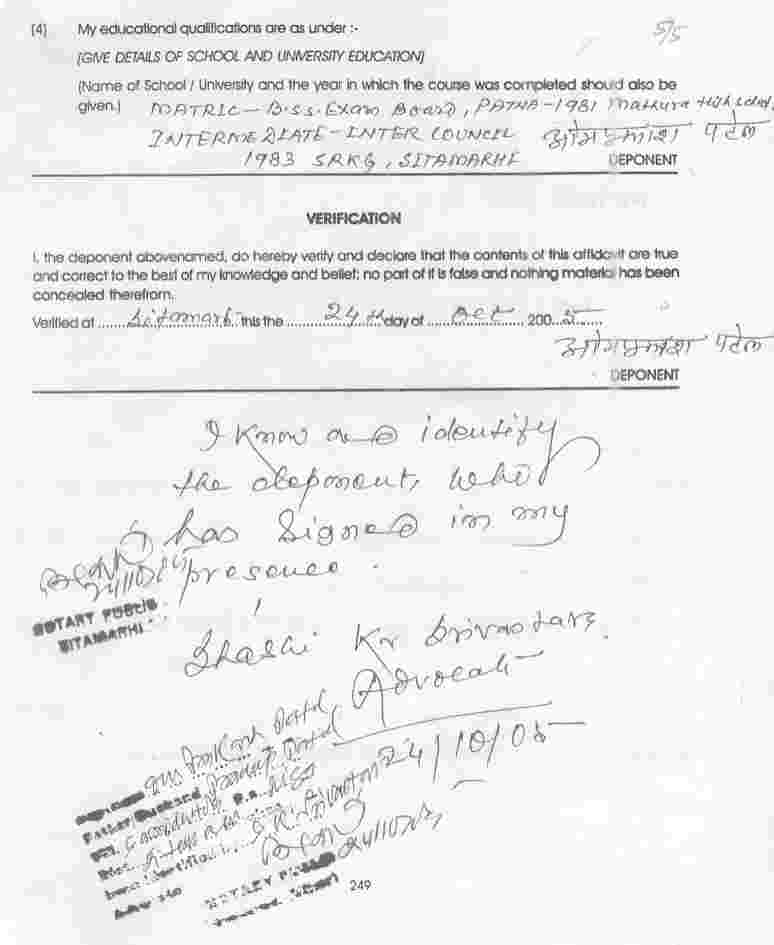 (4) My educational qualifications are as under :- 5/5
(GIVE DETAILS OF SCHOOL AND UNIVERSITY EDUCATION)
(Name of School / University and the year in which the course was completed should also be
given.) MATRIC - B.S.S. Exam Board, PATNA - 1981 Mathura High School,
INTERMEDIATE - INTER COUNCIL ओमप्रकाश पटेल
1983 SRKG, SITAMARHI DEPONENT
VERIFICATION
I, the deponent abovenamed, do hereby verify and declare that the contents of this affidavit are true
and correct to the best of my knowledge and belief; no part of it is false and nothing material has been
concealed therefrom.
Verified at ....... Sitamarhi this the ....... 24th day of ....... Oct ......., 200..5.......
ओमप्रकाश पटेल
DEPONENT
I know and identify
the deponent, who
has signed in my
presence.
24/10/05
NOTARY PUBLIC
SITAMARHI
Shashi Kr Srivastava
Advocate
24/10/05
Father/Husband
24/10/05
NOTARY PUBLIC
249